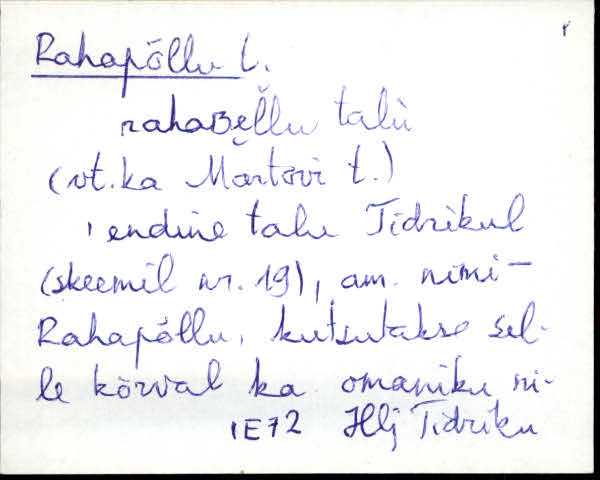 Rahapõllu t.
rahaʙe̮l̆lu talù
(vt. ka Märtovi t.)
, endine talu Tidrikul
(skeemil nr. 19), am. nimi -
Rahapõllu, kutsutakse sel-
le kõrval ka omaniku ni-
IE72 Hlj Tidriku